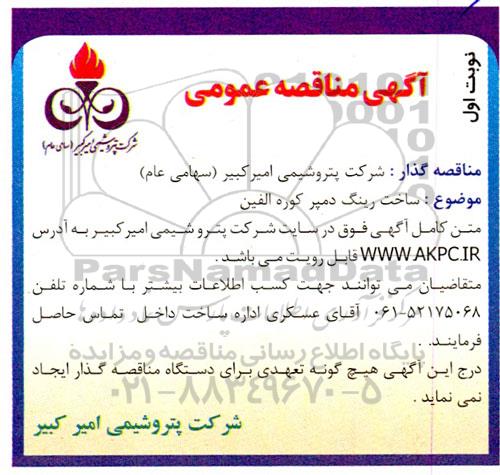 نوبت اول
آگهی مناقصه عمومی
شرکت پتروشیمی امیرکبیر (سهامی عام)
مناقصه گذار : شرکت پتروشیمی امیرکبیر (سهامی عام)
موضوع : ساخت رینگ دمپر کوره الفین
متن کامل آگهی فوق در سایت شرکت پتروشیمی امیرکبیر به آدرس
WWW.AKPC.IR قابل رویت می باشد .
ParsNamadData
متقاضیان می توانند جهت کسب اطلاعات بیشتر با شماره تلفن
۰۶۱-۵۲۱۷۵۰۶۸ آقای عسکری اداره ساخت داخل تماس حاصل
فرمایند.
پایگاه اطلاع رسانی مناقصه و مزایده
درج این آگهی هیچ گونه تعهدی برای دستگاه مناقصه گذار ایجاد
نمی نماید .
۰۲۱-۸۸۳۴۹۶۷۰-۵
شرکت پتروشیمی امیر کبیر